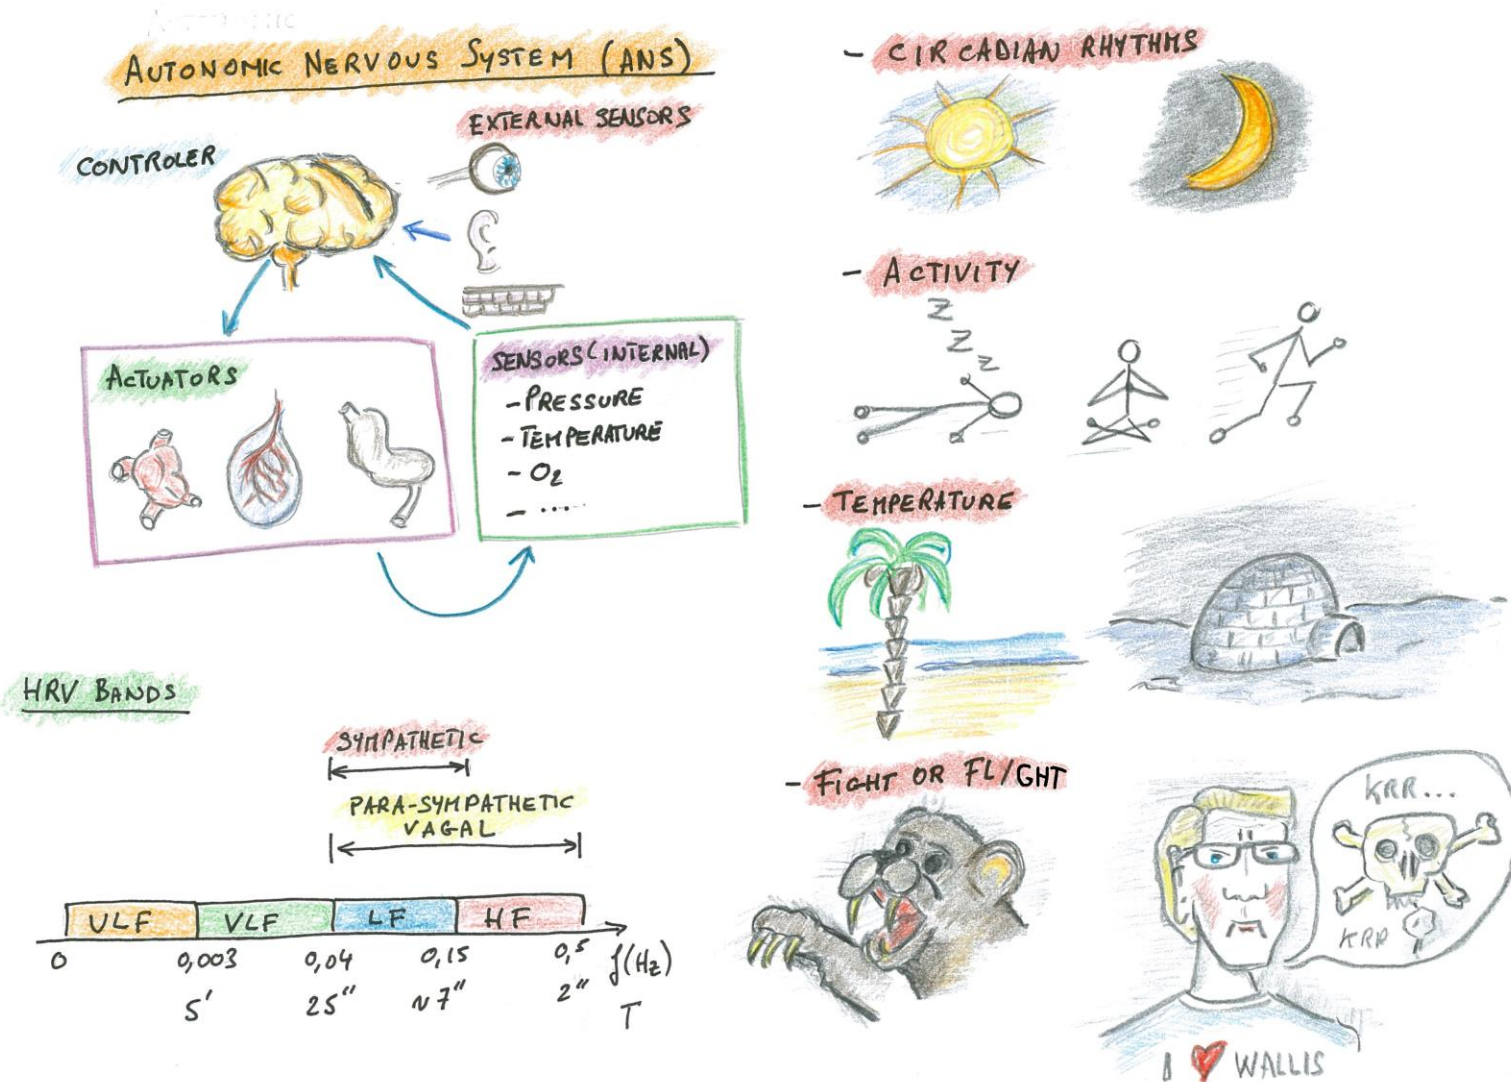 AUTONOMIC NERVOUS SYSTEM (ANS)
EXTERNAL SENSORS
CONTROLER
ACTUATORS
SENSORS (INTERNAL)
- PRESSURE
- TEMPERATURE
- O2
- ....
HRV BANDS
SYMPATHETIC
PARA-SYMPATHETIC
VAGAL
ULF VLF LF HF
0 0,003 0,04 0,15 0,5 f(Hz)
5' 25" ~7" 2" T
- CIRCADIAN RHYTHMS
- ACTIVITY
Z
Z
Z
- TEMPERATURE
- FIGHT OR FL/GHT
KRR...
KRR
I ❤ WALLIS